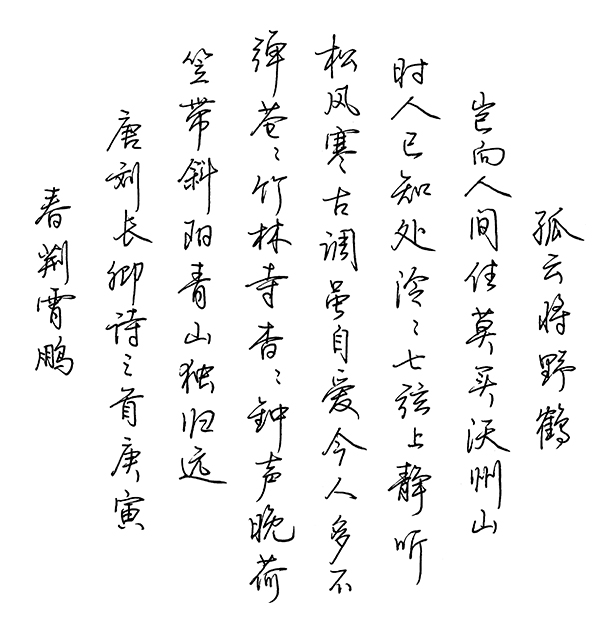 孤云将野鹤
岂向人间住莫买沃州山
时人已知处泠〻七弦上静听
松风寒古调虽自爱今人多不
弹苍〻竹林寺杳〻钟声晚荷
笠带斜阳青山独归远
唐刘长卿诗三首庚寅
春荆霄鹏